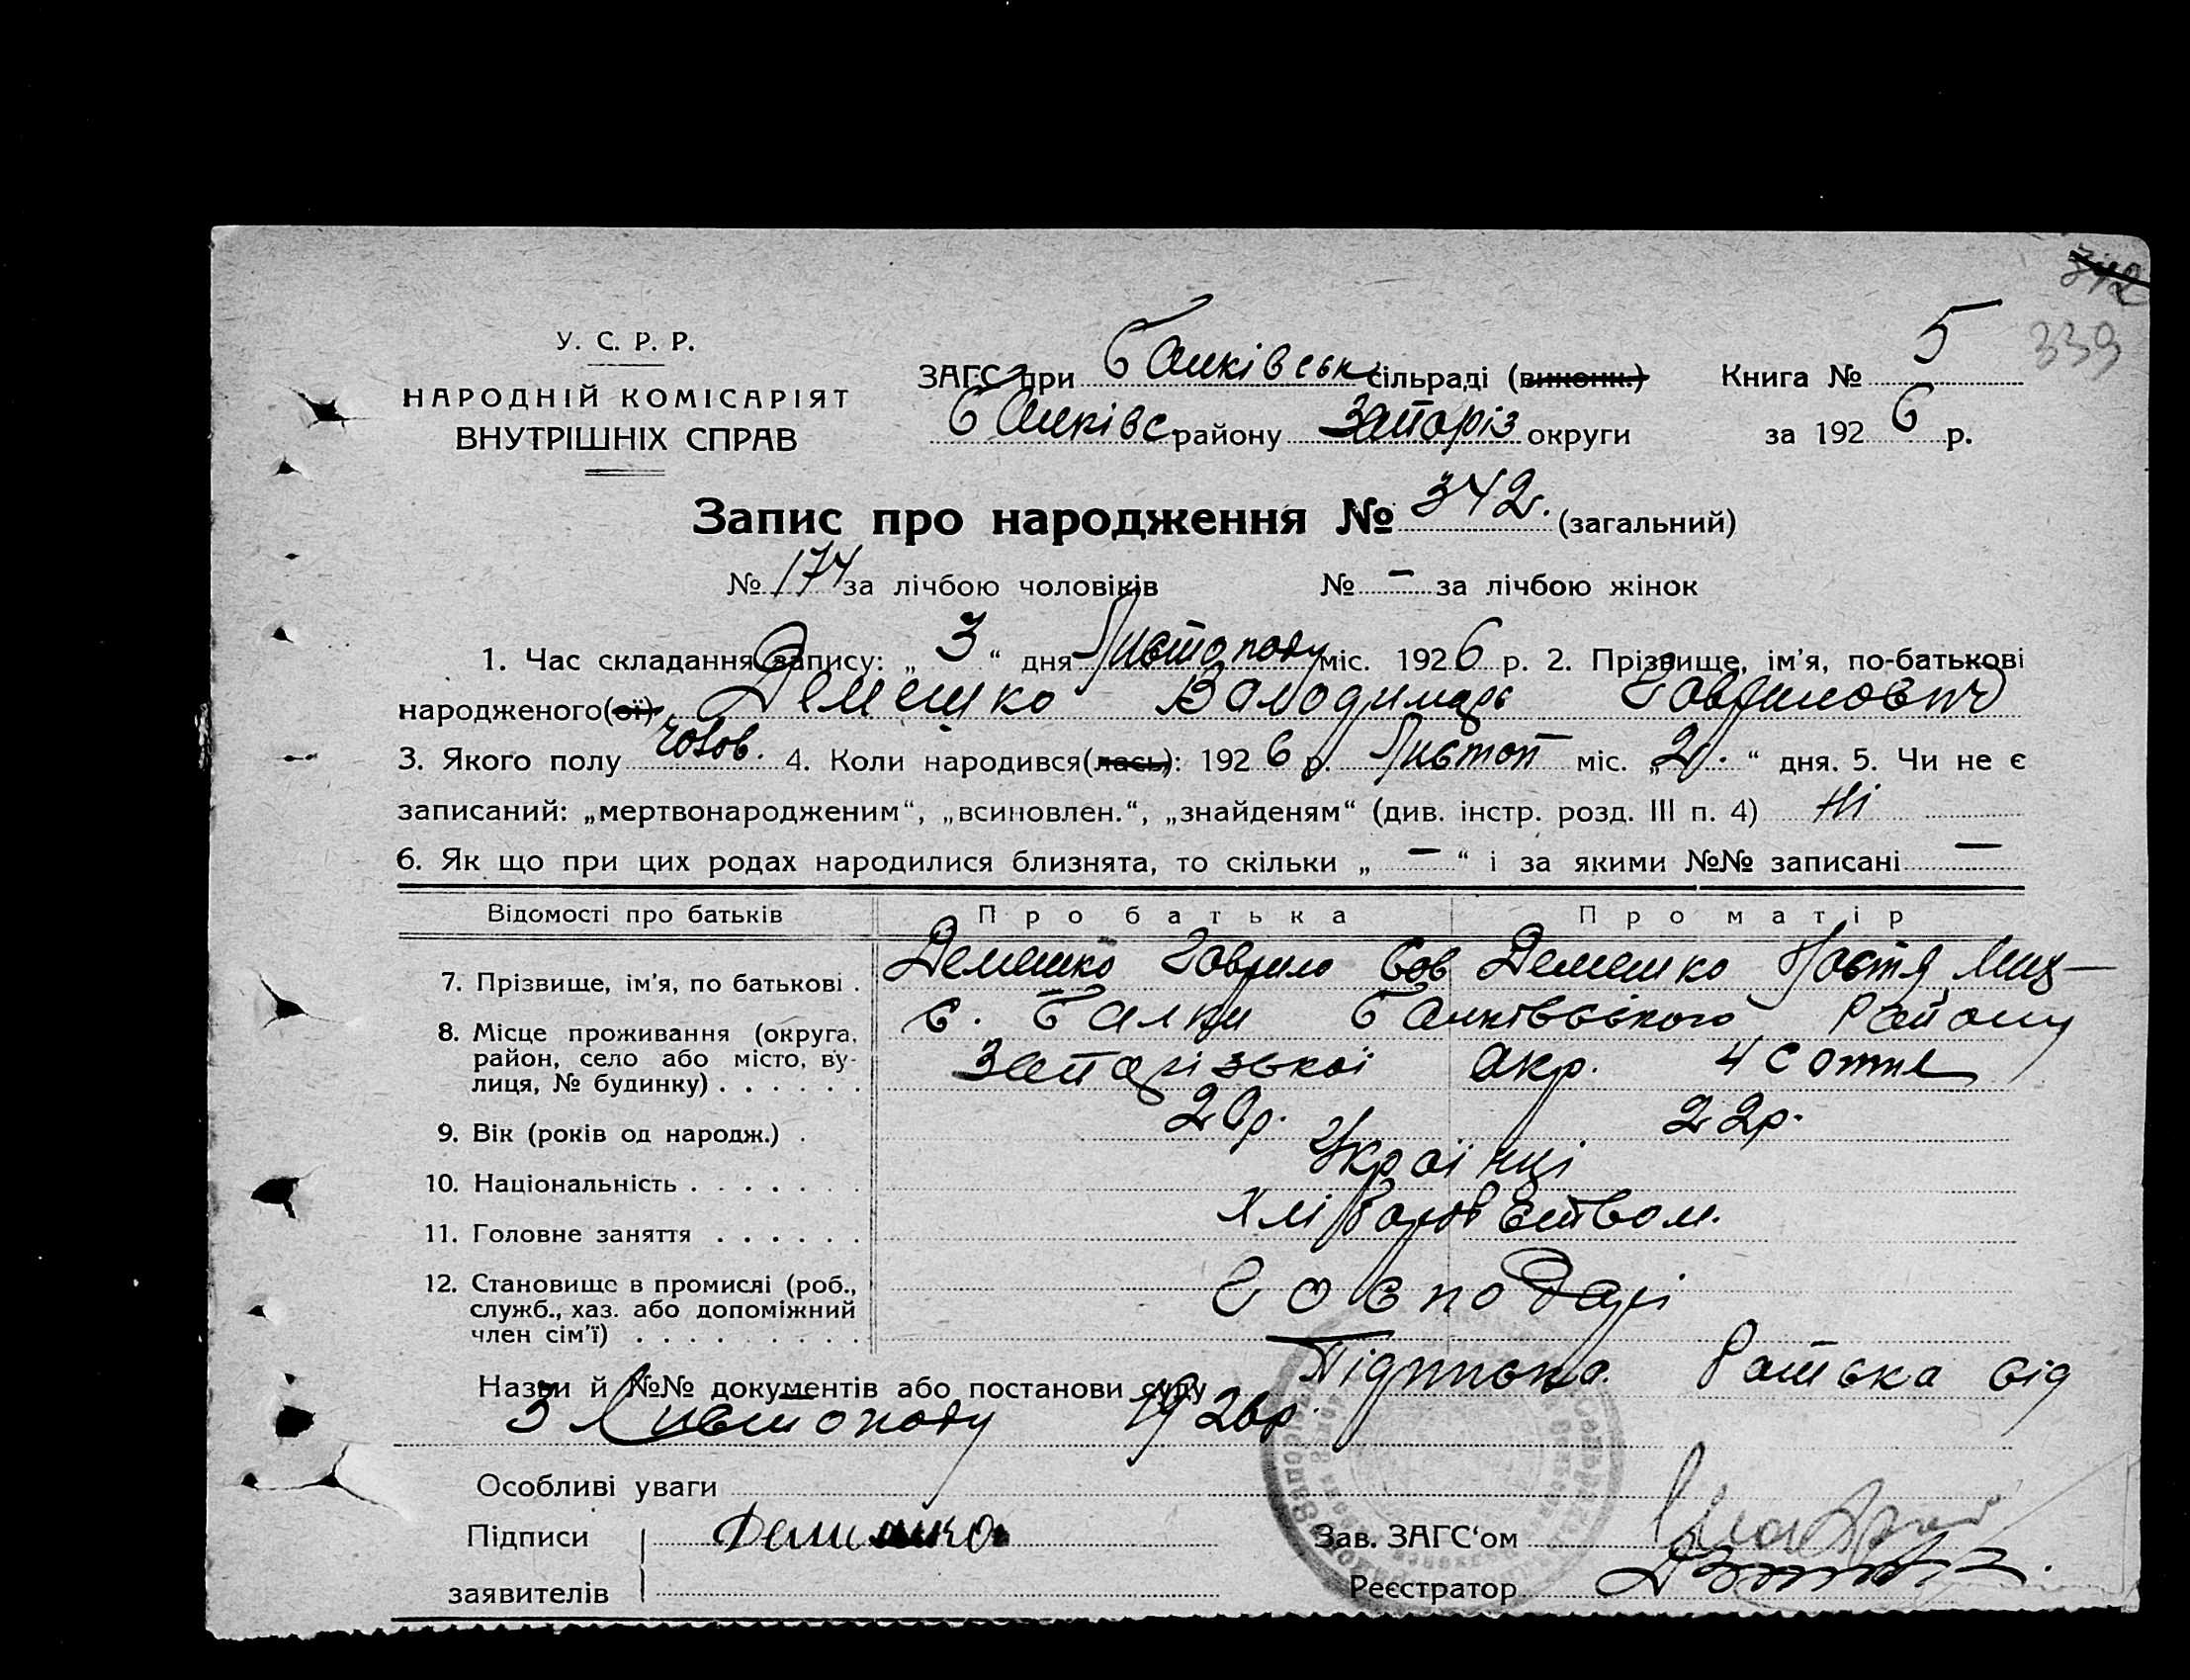 342
У. С. Р. Р.
НАРОДНІЙ КОМІСАРІЯТ
ВНУТРІШНІХ СПРАВ
ЗАГС при Балківськ сільраді (виконк.) Книга № 5 339
Балківс району Запоріз округи за 1926 р.
Запис про народження № 342. (загальний)
№ 174 за лічбою чоловіків № — за лічбою жінок
1. Час складання запису: „ 3 “ дня Листопаду міс. 1926 р. 2. Прізвище, ім'я, по-батькові
народженого(ої) Демешко Володимарь Говрилович
3. Якого полу чолов. 4. Коли народився(лась): 1926 р. Листоп міс. „ 2. “ дня. 5. Чи не є
записаний: „мертвонародженим“, „всиновлен.“, „знайденям“ (див. інстр. розд. III п. 4) Ні
6. Як що при цих родах народилися близнята, то скільки „ — “ і за якими №№ записані —
Відомості про батьків Про батька Про матір
7. Прізвище, ім'я, по батькові . Демешко Говрило Сов Демешко Настя
8. Місце проживання (округа, с. Балки Балківського Району
район, село або місто, ву-
лиця, № будинку) . . . . . . Запорізької окр. 4 сотне
9. Вік (років од народж.) . 20р. 22р.
10. Національність . . . . . . . Українці
11. Головне заняття . . . . . . Хліборобством.
12. Становище в промислі (роб., Господарі
служб., хаз. або допоміжний
член сім'ї) . . . . . . . . .
Назви й №№ документів або постанови суду Підписка. Батька від
3 Листопаду 1926р.
Особливі уваги
Підписи Демешко Зав. ЗАГС'ом
заявителів Реєстратор